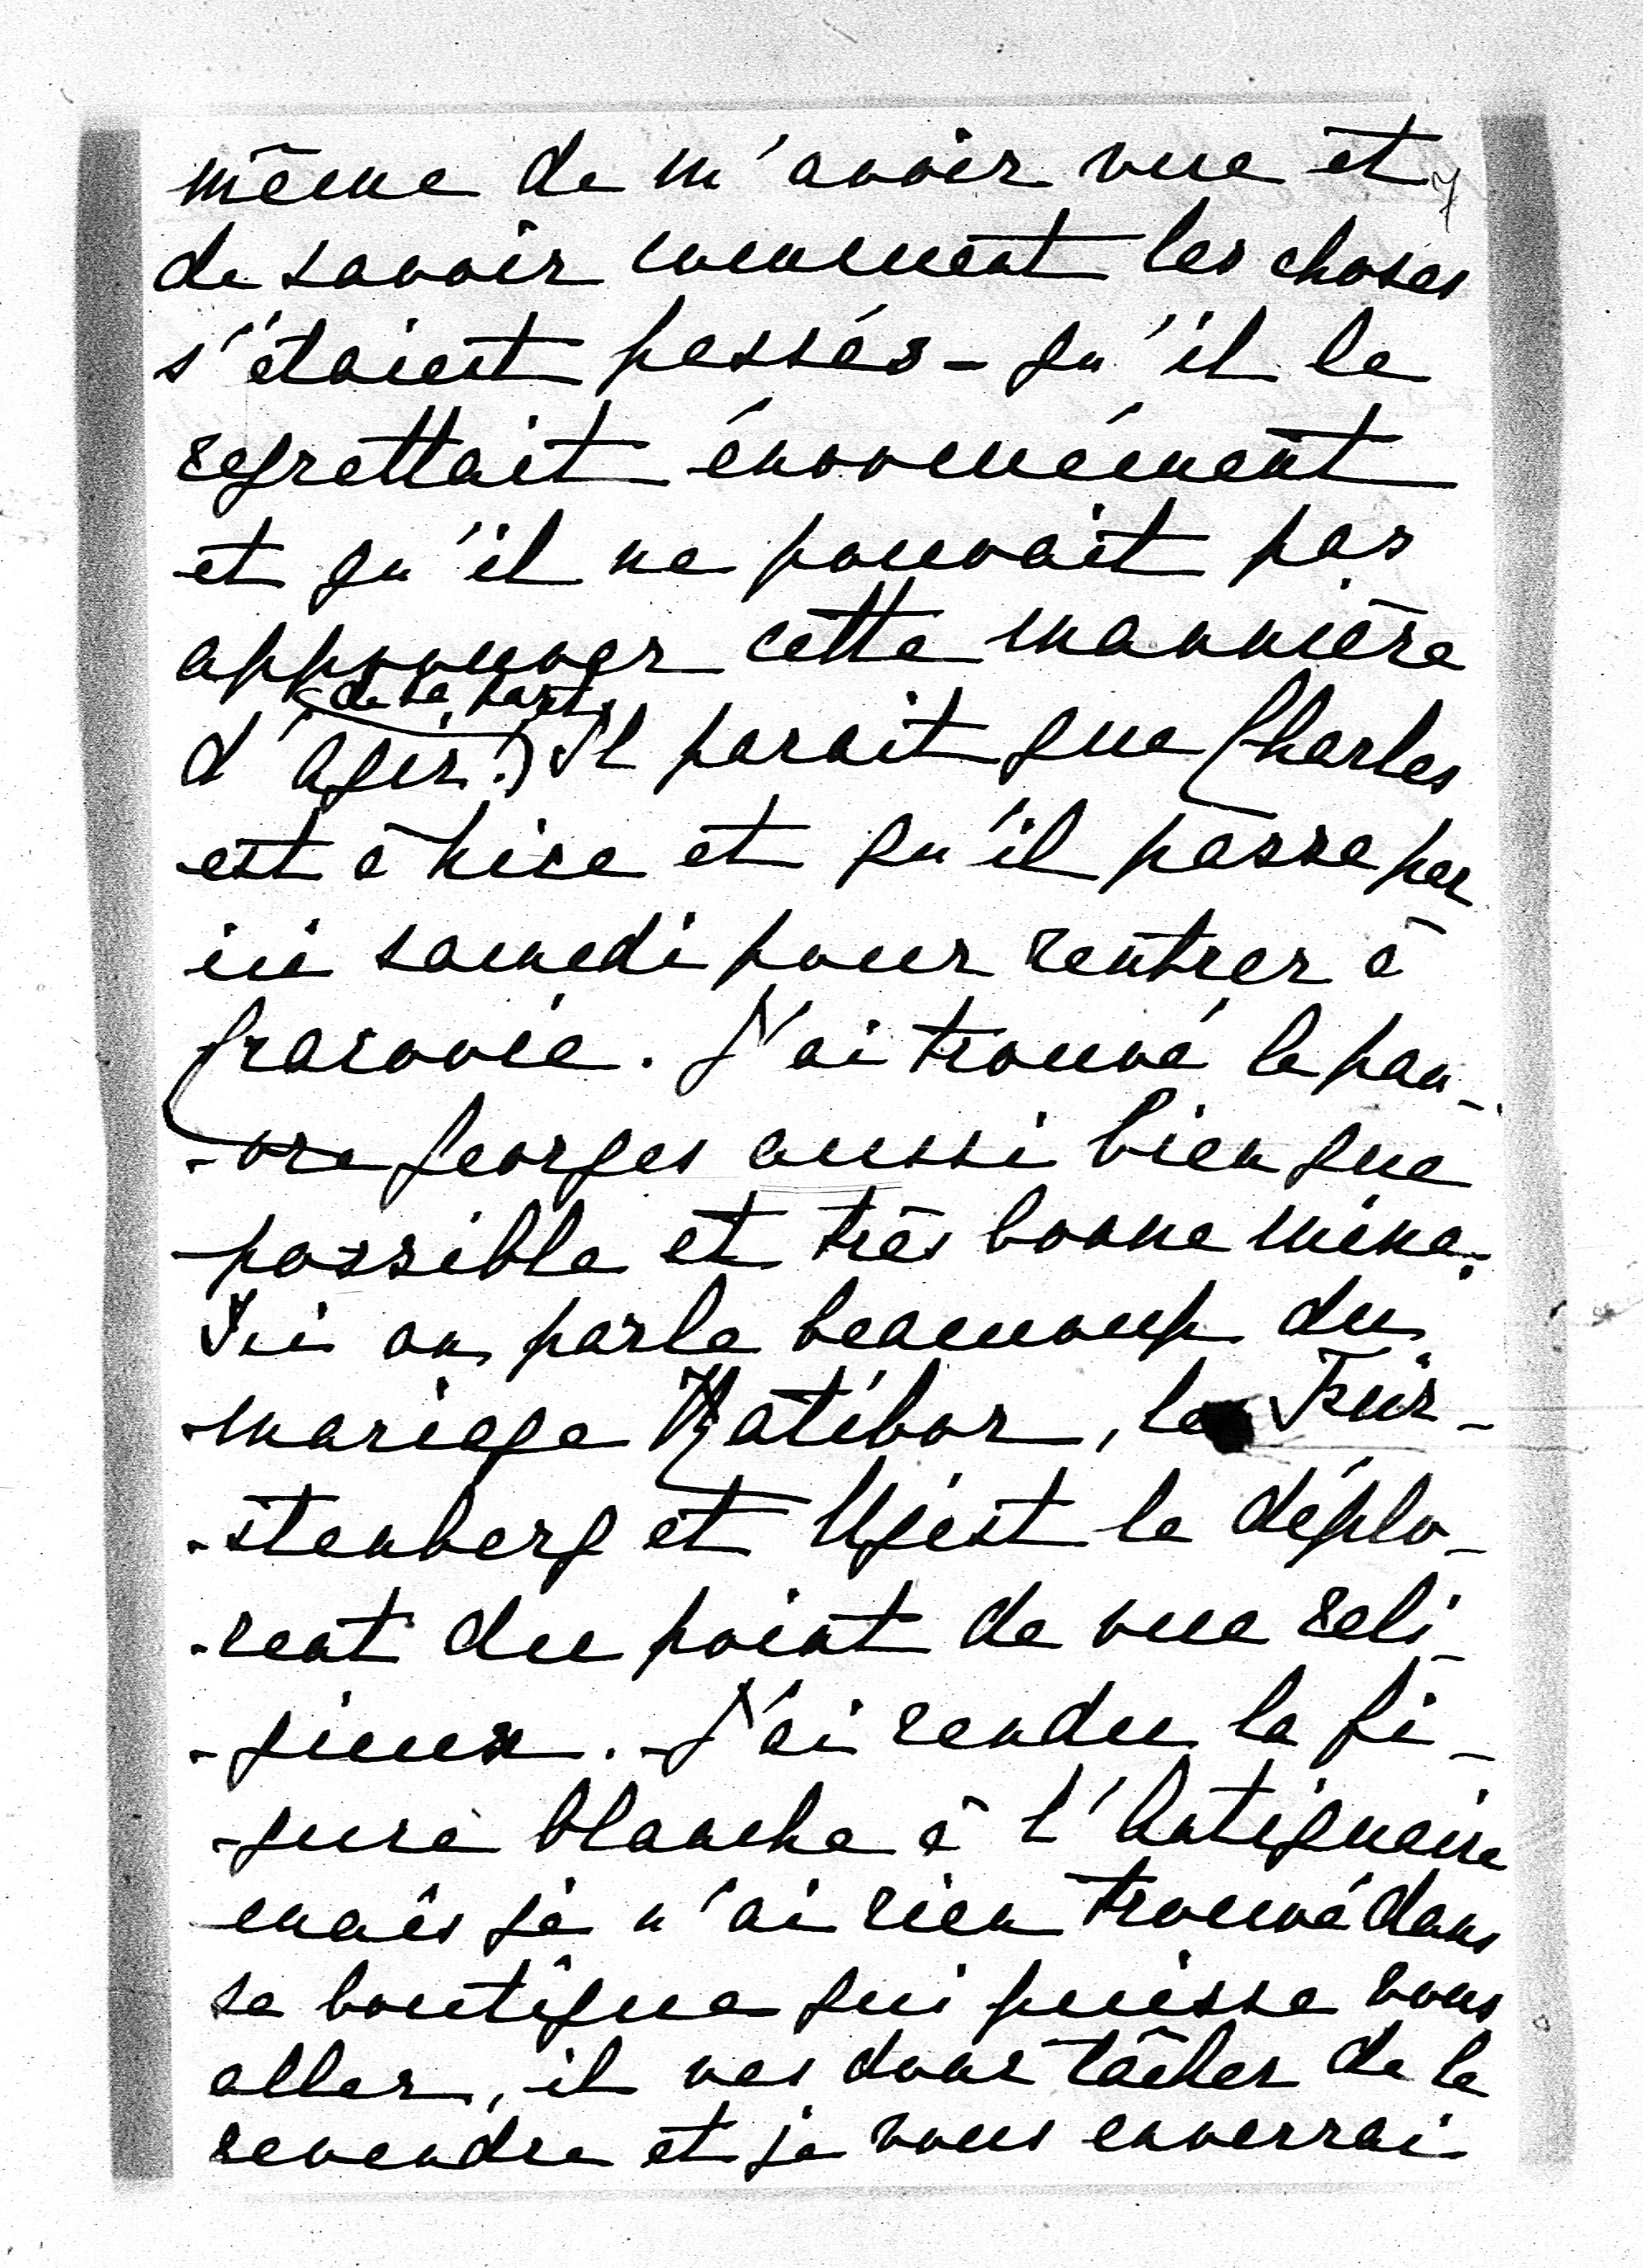 même de m'avoir vue et
de savoir comment les choses
s'étaient passés - qu'il le
regrettait énormément
et qu'il ne pouvait pas
approuver cette mannière
(de sa part
d'agir!) Il parait que Charles
est à Nice et qu'il passe par
ici samedi pour rentrer à
Cracovie. J'ai trouvé le pau-
-vre Georges aussi bien que
possible et très bonne mine.
Ici on parle beaucoup du
mariage Ratibor, les Fürs-
-tenberg et Ujest le déplo-
-rent du point de vue reli-
-gieux. - J'ai rendu la fi-
-gure blanche à l'Antiquaire
mais je n'ai rien trouvé dans
sa boutique qui puisse vous
aller, il vas donc tâcher de la
revendre et je vous enverrai